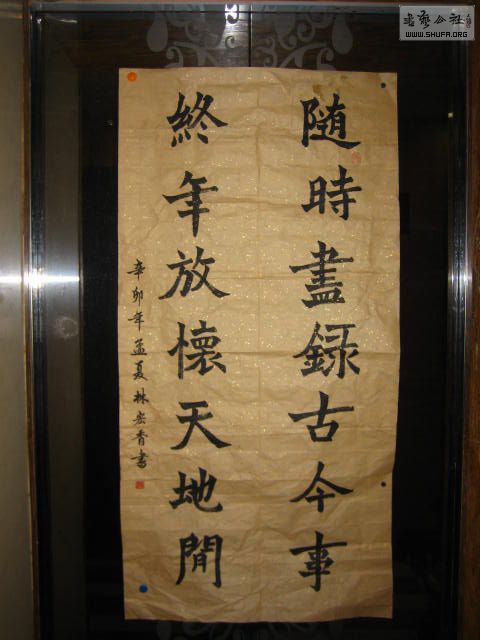 随時盡録古今事
終年放懷天地間
辛卯年孟夏林宏香書
書艺公社
WWW.SHUFA.ORG